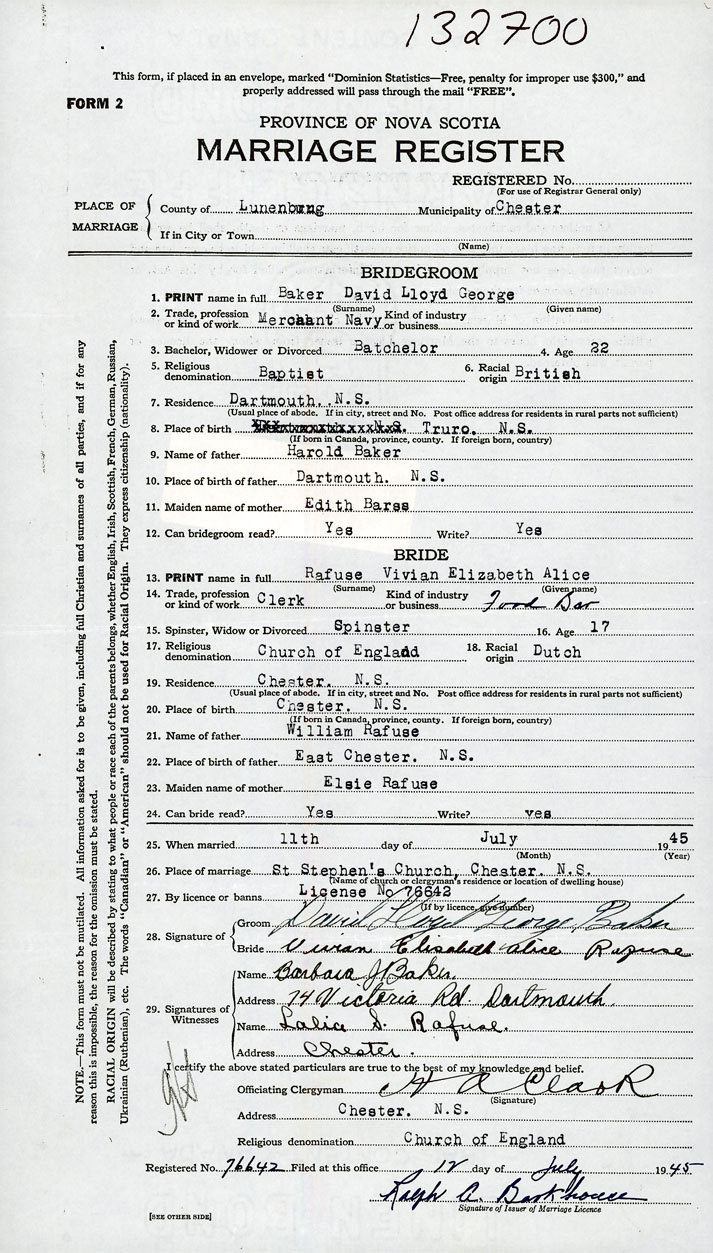 132700
This form, if placed in an envelope, marked "Dominion Statistics—Free, penalty for improper use $300," and
properly addressed will pass through the mail "FREE".
FORM 2
PROVINCE OF NOVA SCOTIA
MARRIAGE REGISTER
REGISTERED No.
(For use of Registrar General only)
PLACE OF MARRIAGE
County of Lunenburg Municipality of Chester
If in City or Town
(Name)
BRIDEGROOM
1. PRINT name in full Baker David Lloyd George
(Surname) (Given name)
2. Trade, profession or kind of work Merchant Navy Kind of industry or business
3. Bachelor, Widower or Divorced Batchelor 4. Age 22
5. Religious denomination Baptist 6. Racial origin British
7. Residence Dartmouth. N.S.
(Usual place of abode. If in city, street and No. Post office address for residents in rural parts not sufficient)
8. Place of birth Truro. N.S.
(If born in Canada, province, county. If foreign born, country)
9. Name of father Harold Baker
10. Place of birth of father Dartmouth. N.S.
11. Maiden name of mother Edith Barss
12. Can bridegroom read? Yes Write? Yes
BRIDE
13. PRINT name in full Rafuse Vivian Elizabeth Alice
(Surname) (Given name)
14. Trade, profession or kind of work Clerk Kind of industry or business Food Bar
15. Spinster, Widow or Divorced Spinster 16. Age 17
17. Religious denomination Church of England 18. Racial origin Dutch
19. Residence Chester. N.S.
(Usual place of abode. If in city, street and No. Post office address for residents in rural parts not sufficient)
20. Place of birth Chester. N.S.
(If born in Canada, province, county. If foreign born, country)
21. Name of father William Rafuse
22. Place of birth of father East Chester. N.S.
23. Maiden name of mother Elsie Rafuse
24. Can bride read? Yes Write? yes
25. When married 11th day of July 1945
(Month) (Year)
26. Place of marriage St Stephen's Church, Chester. N.S.
(Name of church or clergyman's residence or location of dwelling house)
27. By licence or banns License No 76642
(If by licence, give number)
28. Signature of
Groom David Lloyd George Baker
Bride Vivian Elisabeth Alice Rafuse
29. Signatures of Witnesses
Name Barbara J Baker
Address 74 Victoria Rd. Dartmouth
Name Lalia S. Rafuse.
Address Chester.
I certify the above stated particulars are true to the best of my knowledge and belief.
Officiating Clergyman H A Clark
(Signature)
Address Chester. N.S.
Religious denomination Church of England
Registered No. 76642 Filed at this office 12 day of July 1945
Ralph A. Barkhouse
Signature of Issuer of Marriage Licence
[SEE OTHER SIDE]
NOTE.—This form must not be mutilated. All information asked for is to be given, including full Christian and surnames of all parties, and if for any
reason this is impossible, the reason for the omission must be stated.
RACIAL ORIGIN will be described by stating to what people or race each of the parents belongs, whether English, Irish, Scottish, French, German, Russian,
Ukrainian (Ruthenian), etc. The words "Canadian" or "American" should not be used for Racial Origin. They express citizenship (nationality).